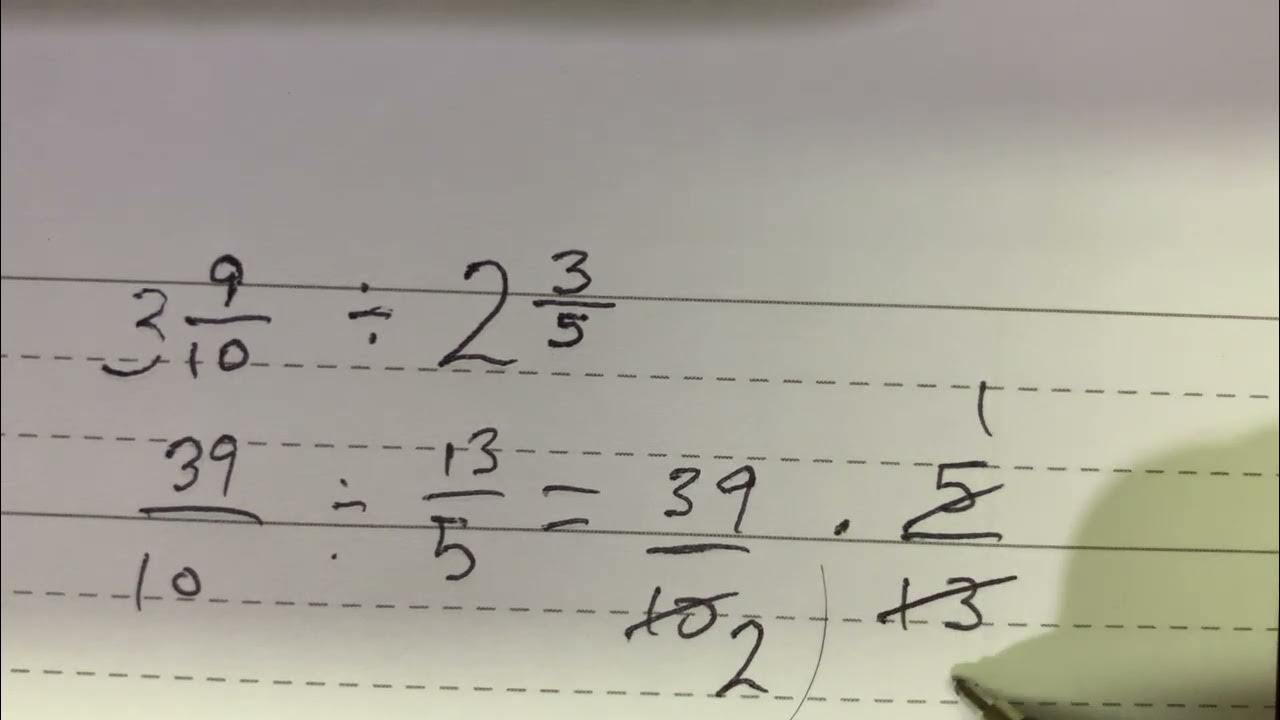 3 9/10 ÷ 2 3/5
39/10 ÷ 13/5 = 39/10 · 5/13
1
2